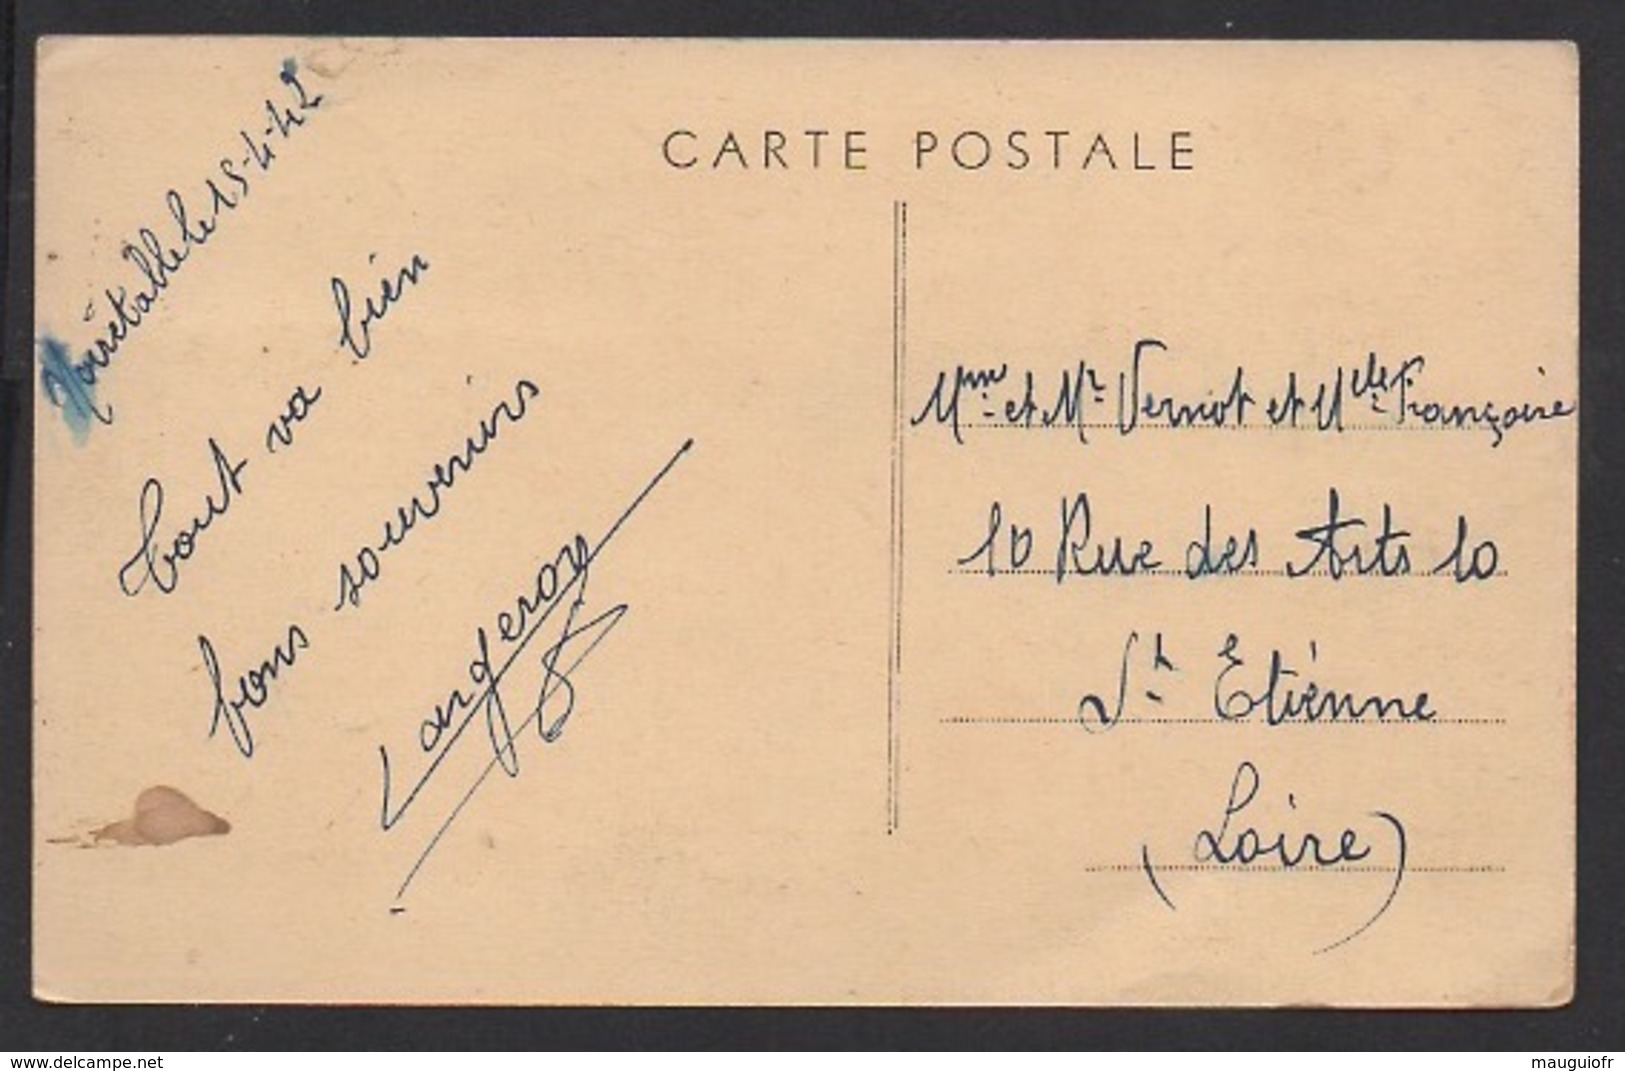 CARTE POSTALE
Noirétable le 15-4-42
tout va bien
bons souvenirs
Langeron
Mme et Mr Vernot et Mlle Françoise
10 Rue des Arts 10
St Etienne
(Loire)
www.delcampe.net
mauguiofr